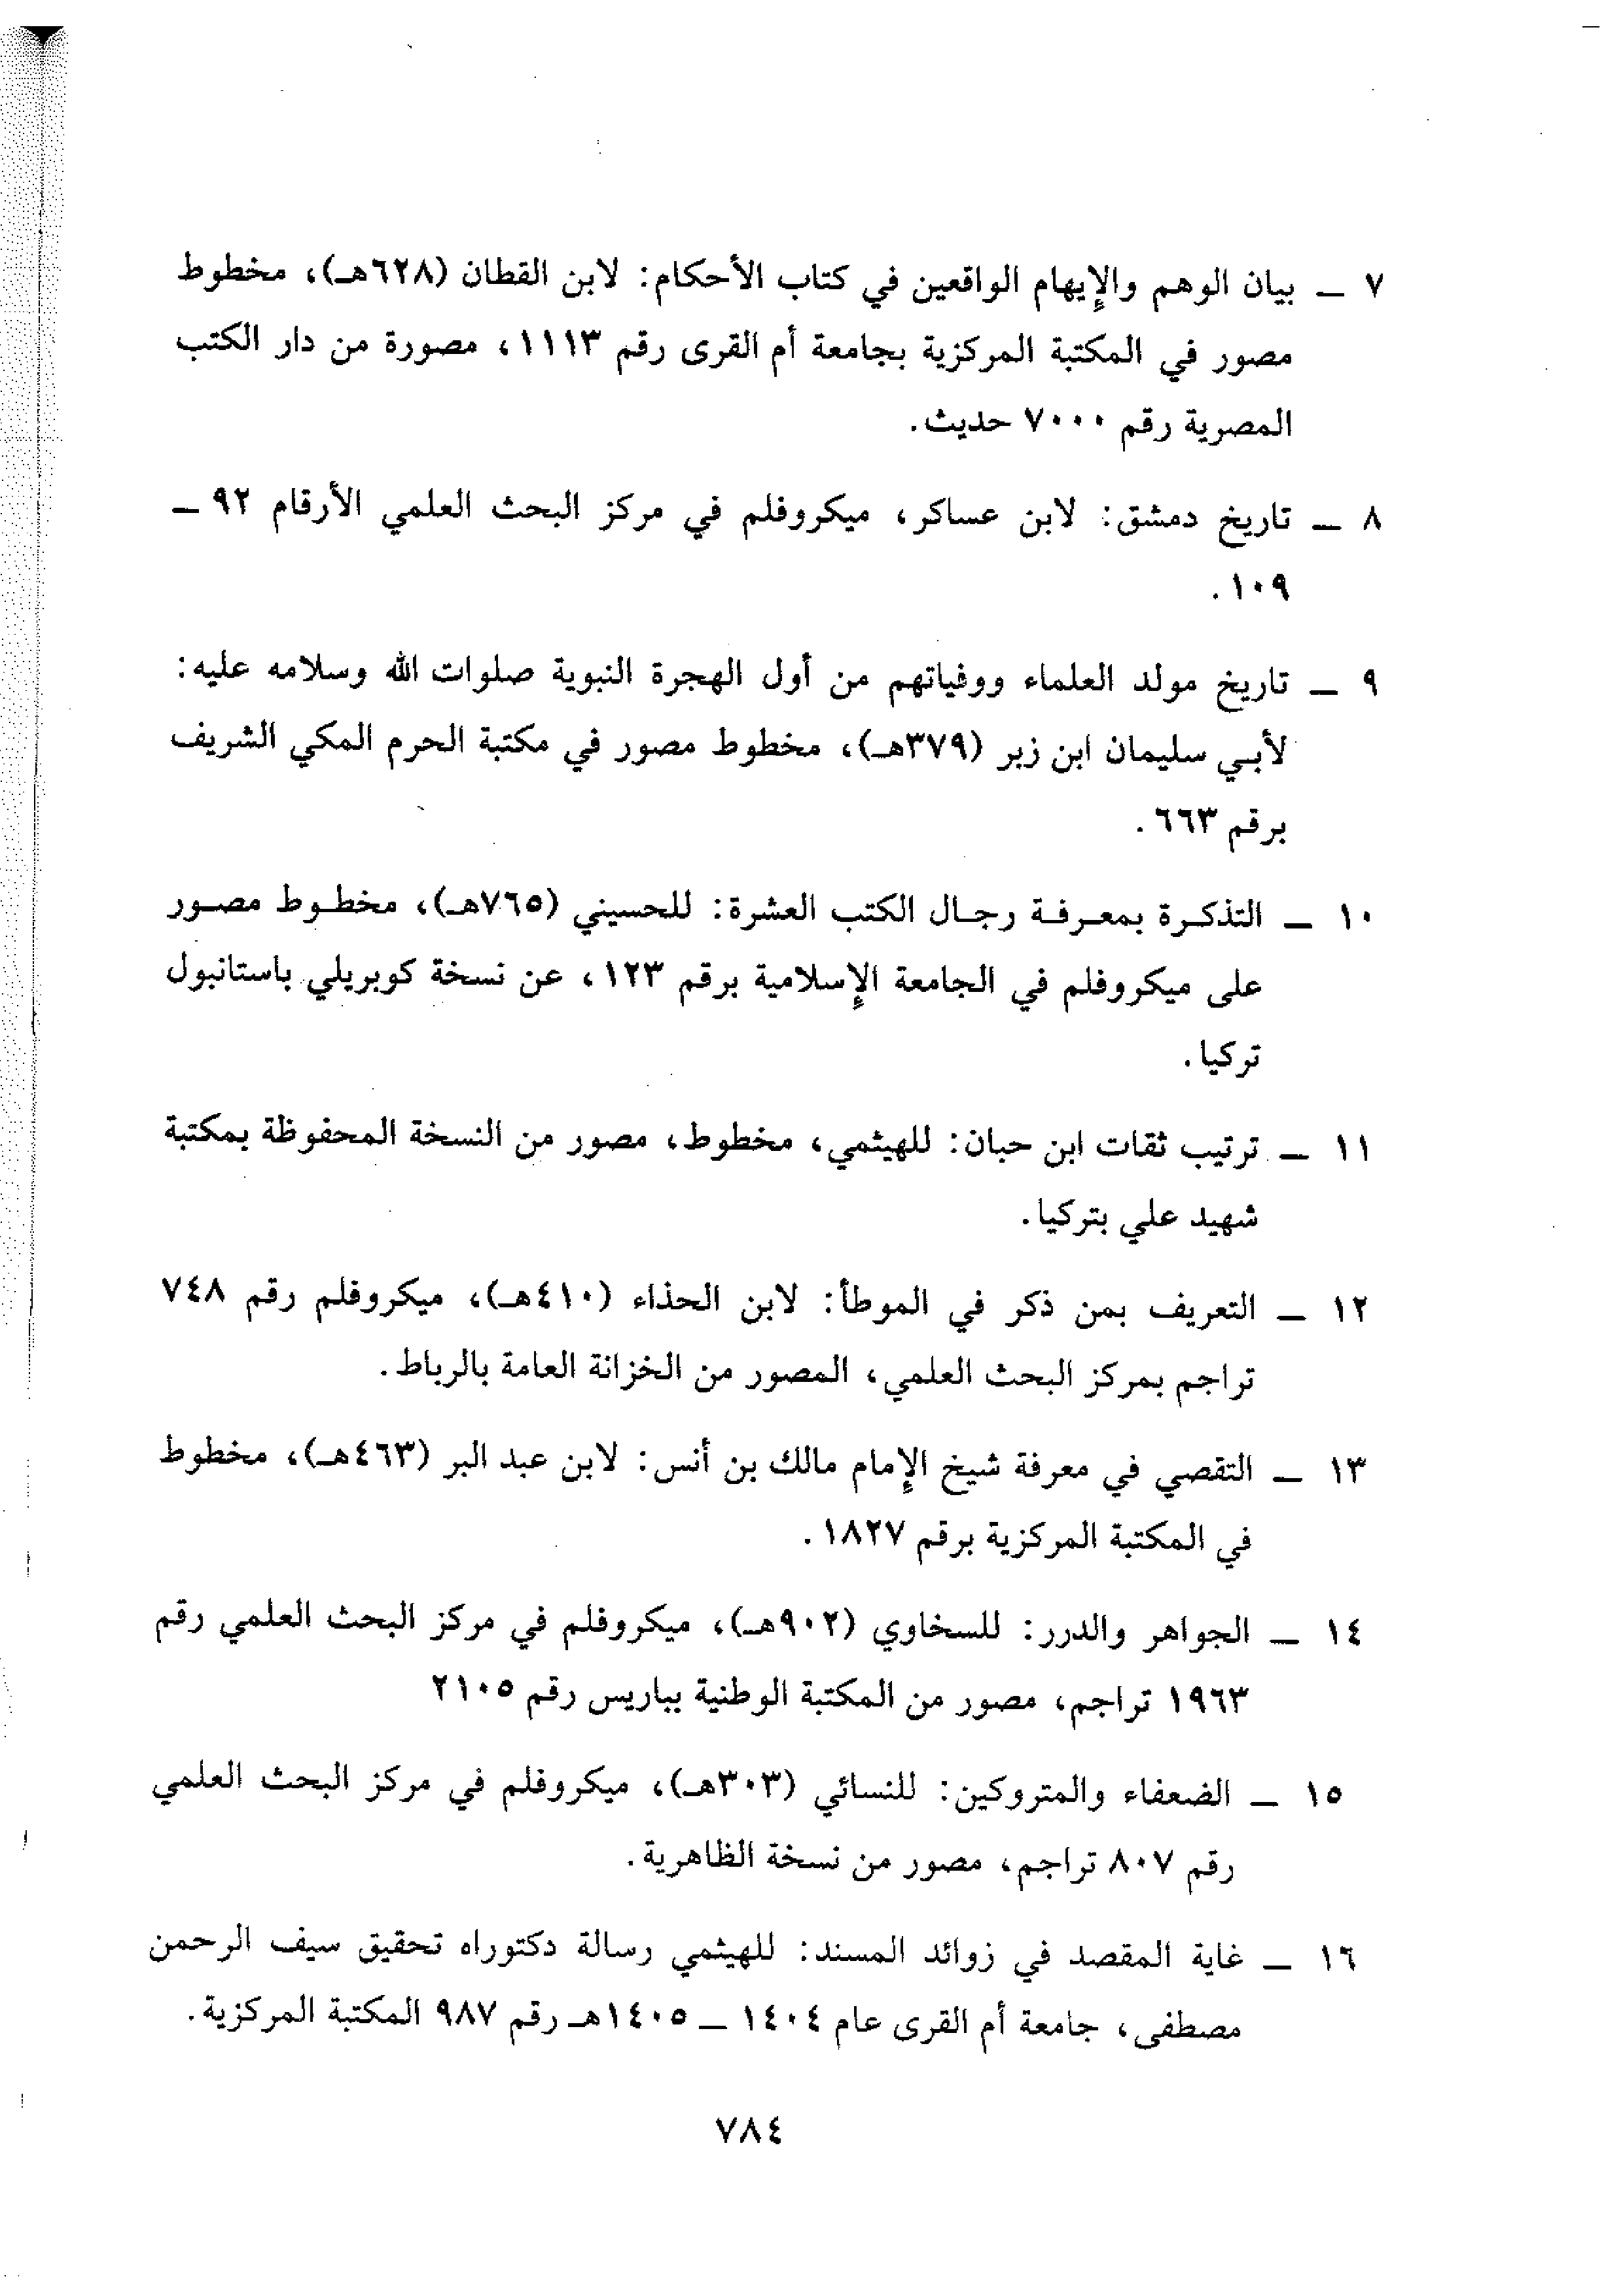 ٧ ــ بيان الوهم والإيهام الواقعين في كتاب الأحكام: لابن القطان (٦٢٨هـ)، مخطوط
مصور في المكتبة المركزية بجامعة أم القرى رقم ١١١٣، مصورة من دار الكتب
المصرية رقم ٧٠٠٠ حديث.
٨ ــ تاريخ دمشق: لابن عساكر، ميكروفلم في مركز البحث العلمي الأرقام ٩٢ ــ
١٠٩.
٩ ــ تاريخ مولد العلماء ووفياتهم من أول الهجرة النبوية صلوات الله وسلامه عليه:
لأبي سليمان ابن زبر (٣٧٩هـ)، مخطوط مصور في مكتبة الحرم المكي الشريف
برقم ٦٦٣.
١٠ ــ التذكرة بمعرفة رجال الكتب العشرة: للحسيني (٧٦٥هـ)، مخطوط مصور
على ميكروفلم في الجامعة الإسلامية برقم ١٢٣، عن نسخة كوبريلي باستانبول
تركيا.
١١ ــ ترتيب ثقات ابن حبان: للهيثمي، مخطوط، مصور من النسخة المحفوظة بمكتبة
شهيد علي بتركيا.
١٢ ــ التعريف بمن ذكر في الموطأ: لابن الحذاء (٤١٠هـ)، ميكروفلم رقم ٧٤٨
تراجم بمركز البحث العلمي، المصور من الخزانة العامة بالرباط.
١٣ ــ التقصي في معرفة شيخ الإمام مالك بن أنس: لابن عبد البر (٤٦٣هـ)، مخطوط
في المكتبة المركزية برقم ١٨٢٧.
١٤ ــ الجواهر والدرر: للسخاوي (٩٠٢هـ)، ميكروفلم في مركز البحث العلمي رقم
١٩٦٣ تراجم، مصور من المكتبة الوطنية بباريس رقم ٢١٠٥
١٥ ــ الضعفاء والمتروكين: للنسائي (٣٠٣هـ)، ميكروفلم في مركز البحث العلمي
رقم ٨٠٧ تراجم، مصور من نسخة الظاهرية.
١٦ ــ غاية المقصد في زوائد المسند: للهيثمي رسالة دكتوراه تحقيق سيف الرحمن
مصطفى، جامعة أم القرى عام ١٤٠٤ ــ ١٤٠٥هـ رقم ٩٨٧ المكتبة المركزية.
٧٨٤